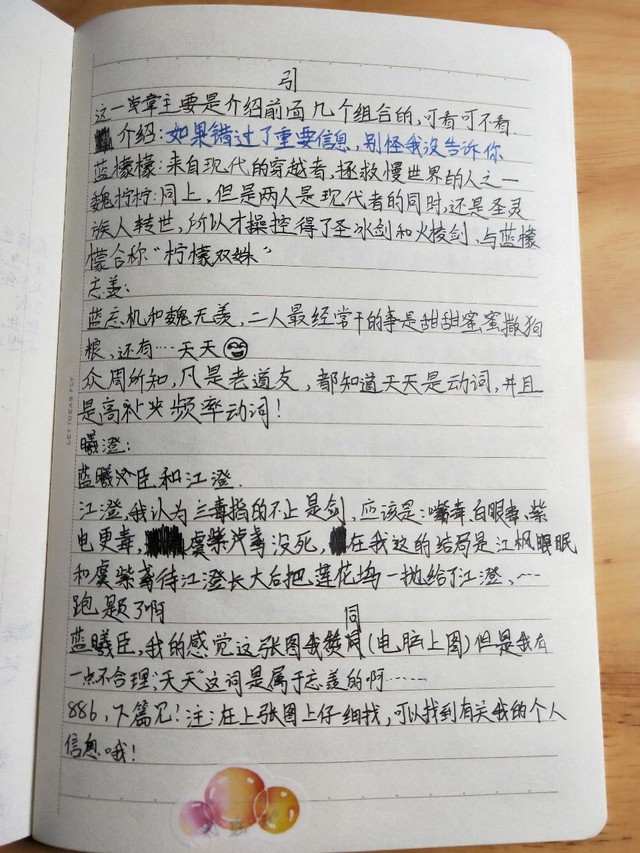 引
这一章主要是介绍前面几个组合的,可看可不看.
介绍:如果错过了重要信息,别怪我没告诉你
蓝檬檬:来自现代的穿越者,拯救慢世界的人之一
魏柠柠:同上,但是两人是现代者的同时,还是圣灵
族人转世,所以才操控得了圣水剑和火棱剑,与蓝檬
檬合称“柠檬双姝”
忘羡:
蓝忘机和魏无羡,二人最经常干的事是甜甜蜜蜜撒狗
粮,还有····天天
众周所知,凡是老道友,都知道天天是动词,并且
是高频率动词!
曦澄:
蓝曦臣和江澄.
江澄,我认为三毒指的不止是剑,应该是:嘴毒、白眼毒、紫
电更毒,虞紫鸢没死,在我这的结局是江枫眠
和虞紫鸢待江澄长大后把莲花坞一抛给了江澄、~~
跑题了啊
蓝曦臣,我的感觉这张图我赞同(电脑上图)但是我有
一点不合理,“天天”这词是属于忘羡的啊······
886,下篇见!注:在上张图上仔细找,可以找到有关我的个人
信息哦!